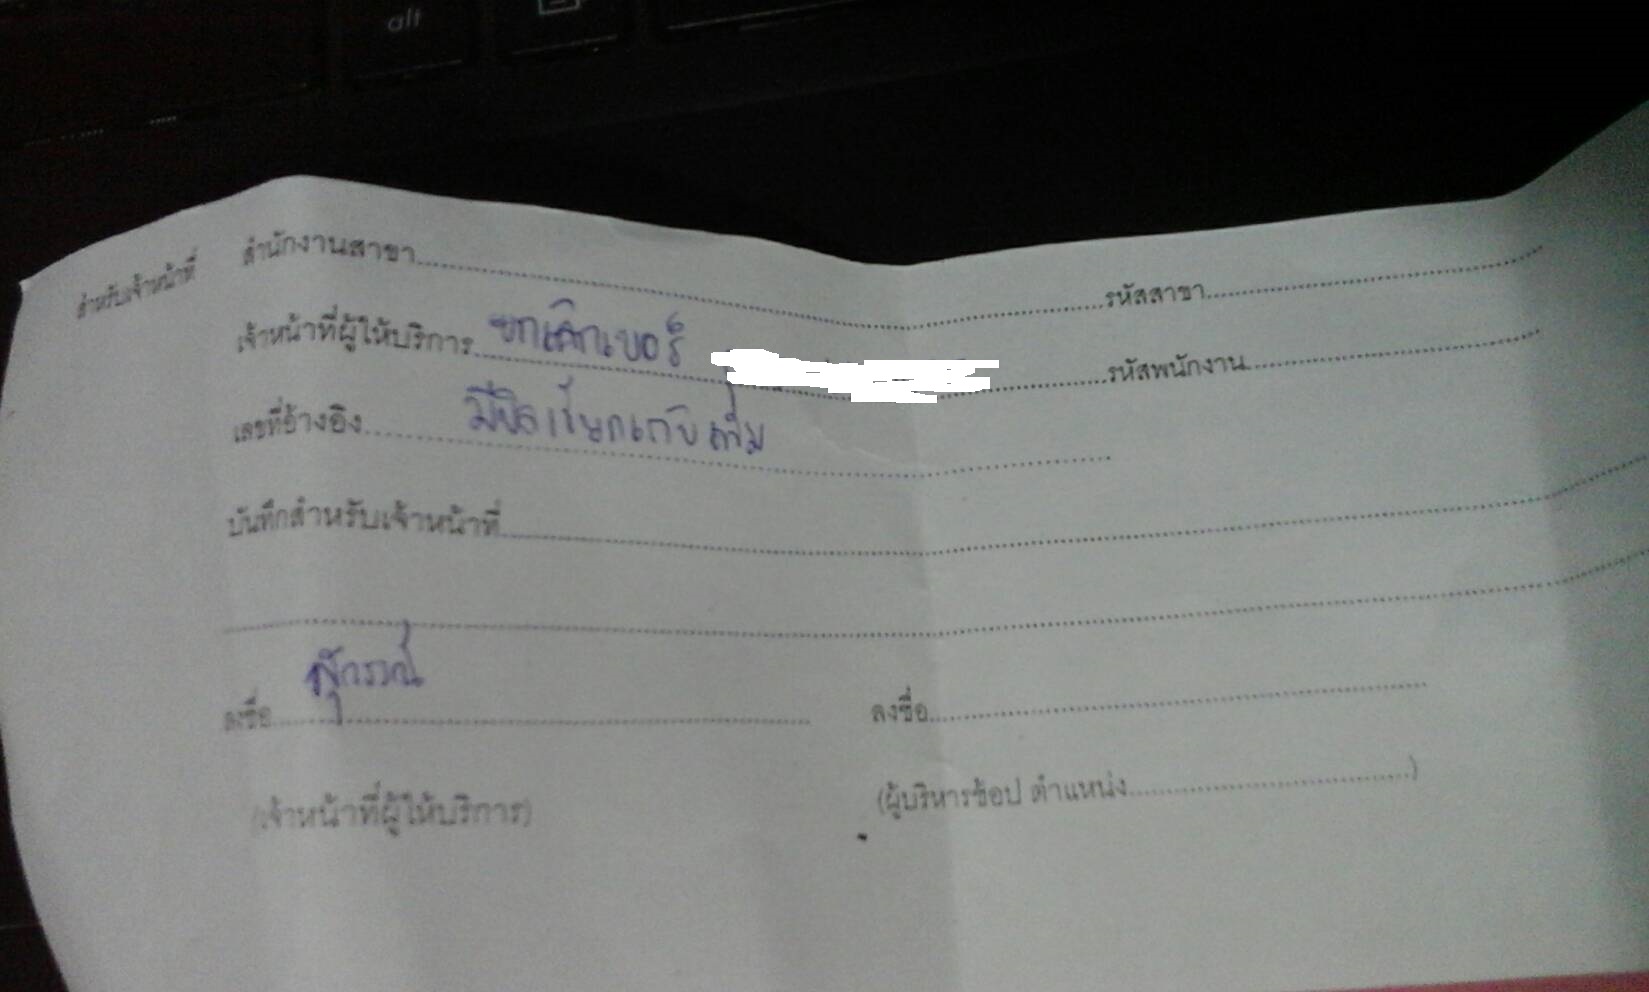 alt
สำหรับเจ้าหน้าที่
สำนักงานสาขา........................รหัสสาขา........................
เจ้าหน้าที่ผู้ให้บริการ ยกเลิกเบอร์ ........................รหัสพนักงาน........................
เลขที่อ้างอิง........ มีบิลเรียกเก็บเพิ่ม ........................
บันทึกสำหรับเจ้าหน้าที่........................
ลงชื่อ........................ ลงชื่อ........................
(เจ้าหน้าที่ผู้ให้บริการ) (ผู้บริหารช้อป ตำแหน่ง........................)